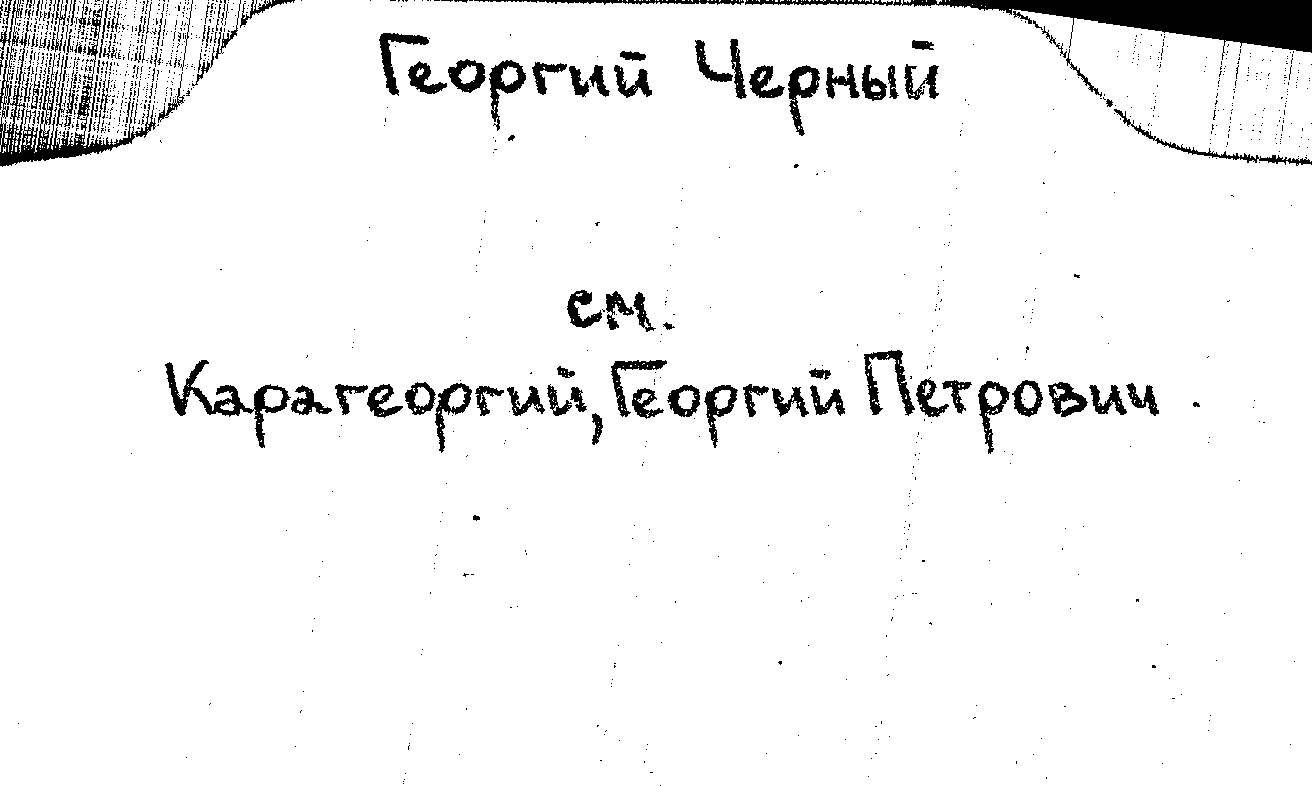 Георгий Черный
см.
Карагеоргий, Георгий Петрович.